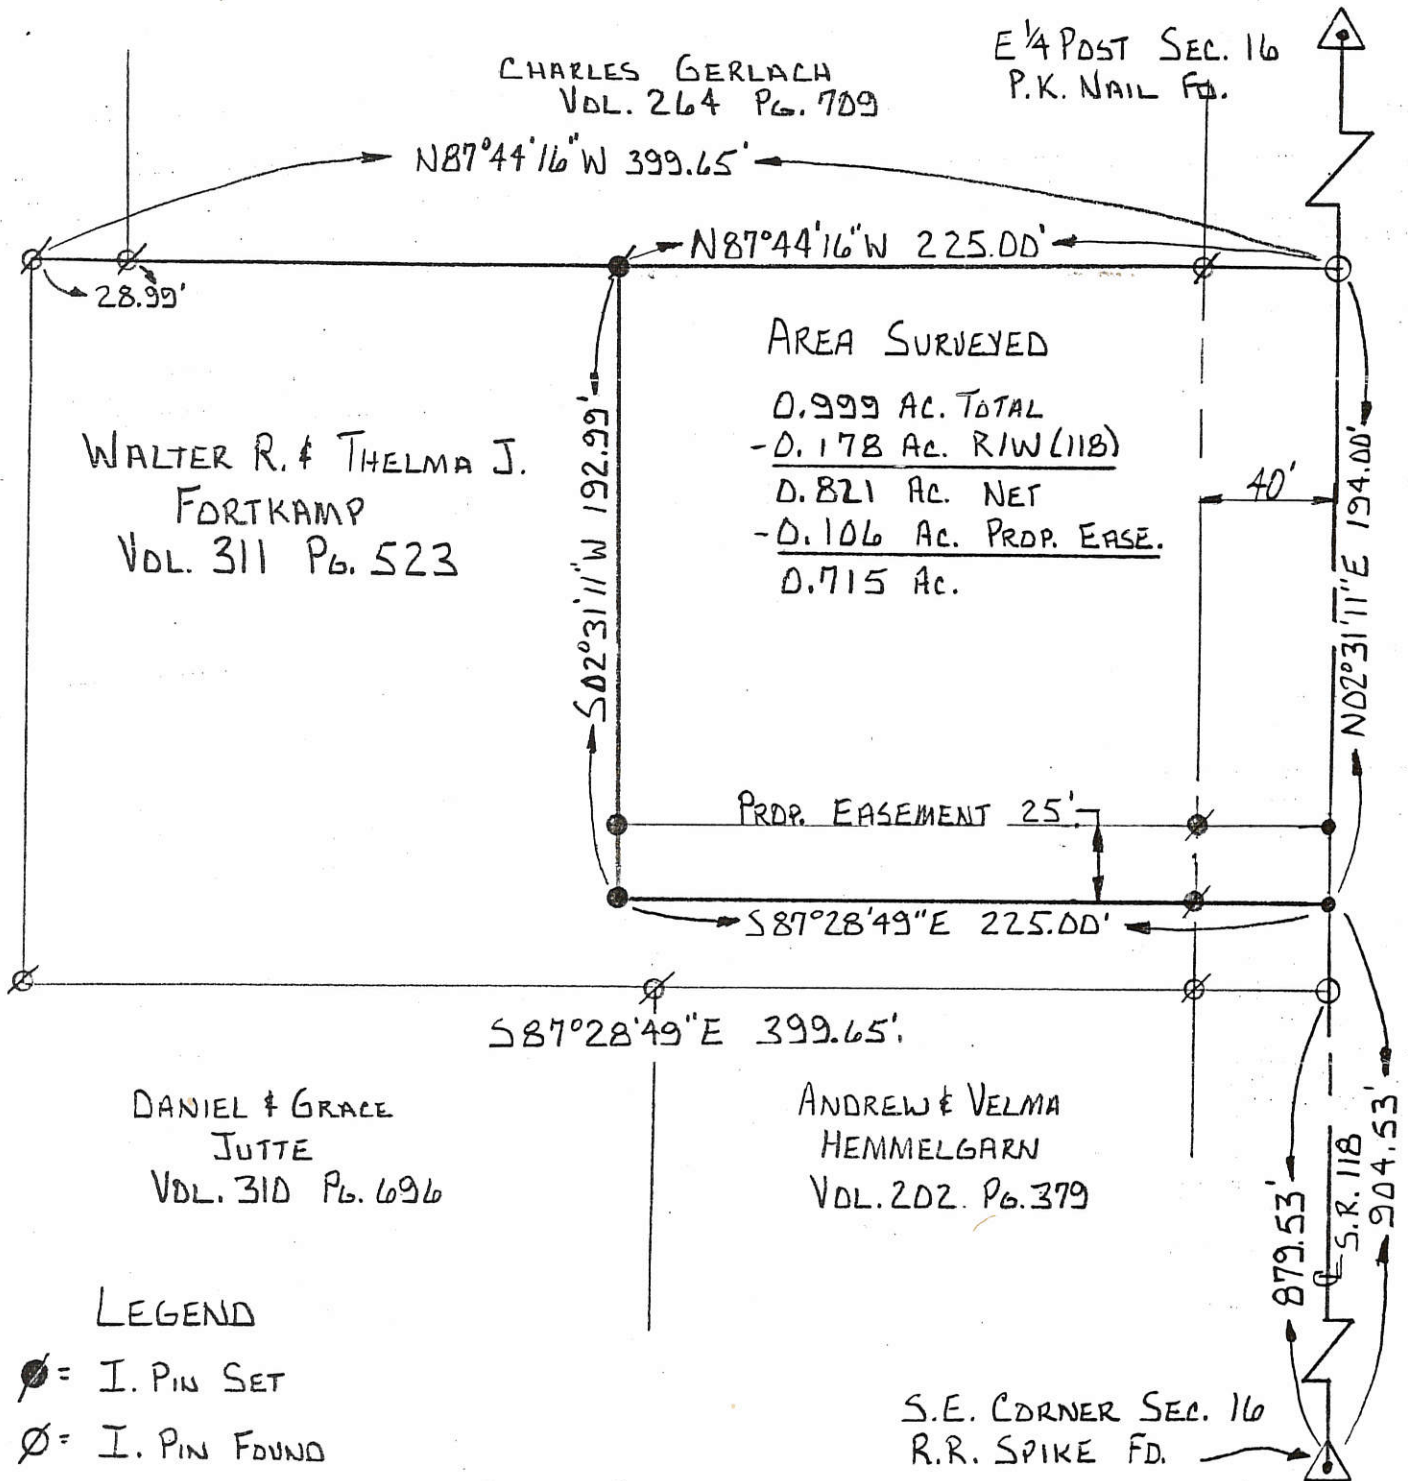 E 1/4 POST SEC. 16
P.K. NAIL FD.
CHARLES GERLACH
VOL. 264 PG. 709
N87°44'16"W 399.65'
N87°44'16"W 225.00'
28.99'
AREA SURVEYED
0.999 AC. TOTAL
-0.178 AC. R/W (118)
0.821 AC. NET
-0.106 AC. PROP. EASE.
0.715 AC.
WALTER R. & THELMA J.
FORTKAMP
VOL. 311 PG. 523
S02°31'11"W 192.99'
40'
N02°31'11"E 194.00'
PROP. EASEMENT 25'
S87°28'49"E 225.00'
S87°28'49"E 399.65'
DANIEL & GRACE
JUTTE
VOL. 310 PG. 696
ANDREW & VELMA
HEMMELGARN
VOL. 202 PG. 379
879.53'
℄ S.R. 118
904.53'
LEGEND
= I. PIN SET
= I. PIN FOUND
S.E. CORNER SEC. 16
R.R. SPIKE FD.